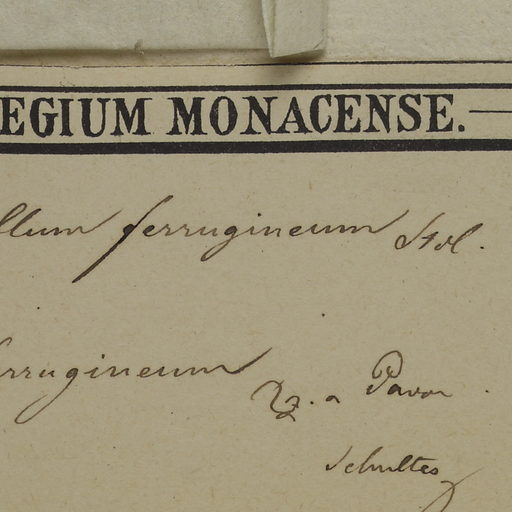 EGIUM MONACENSE.
llum ferrugineum
rrugineum R. a Pavon
Schultes